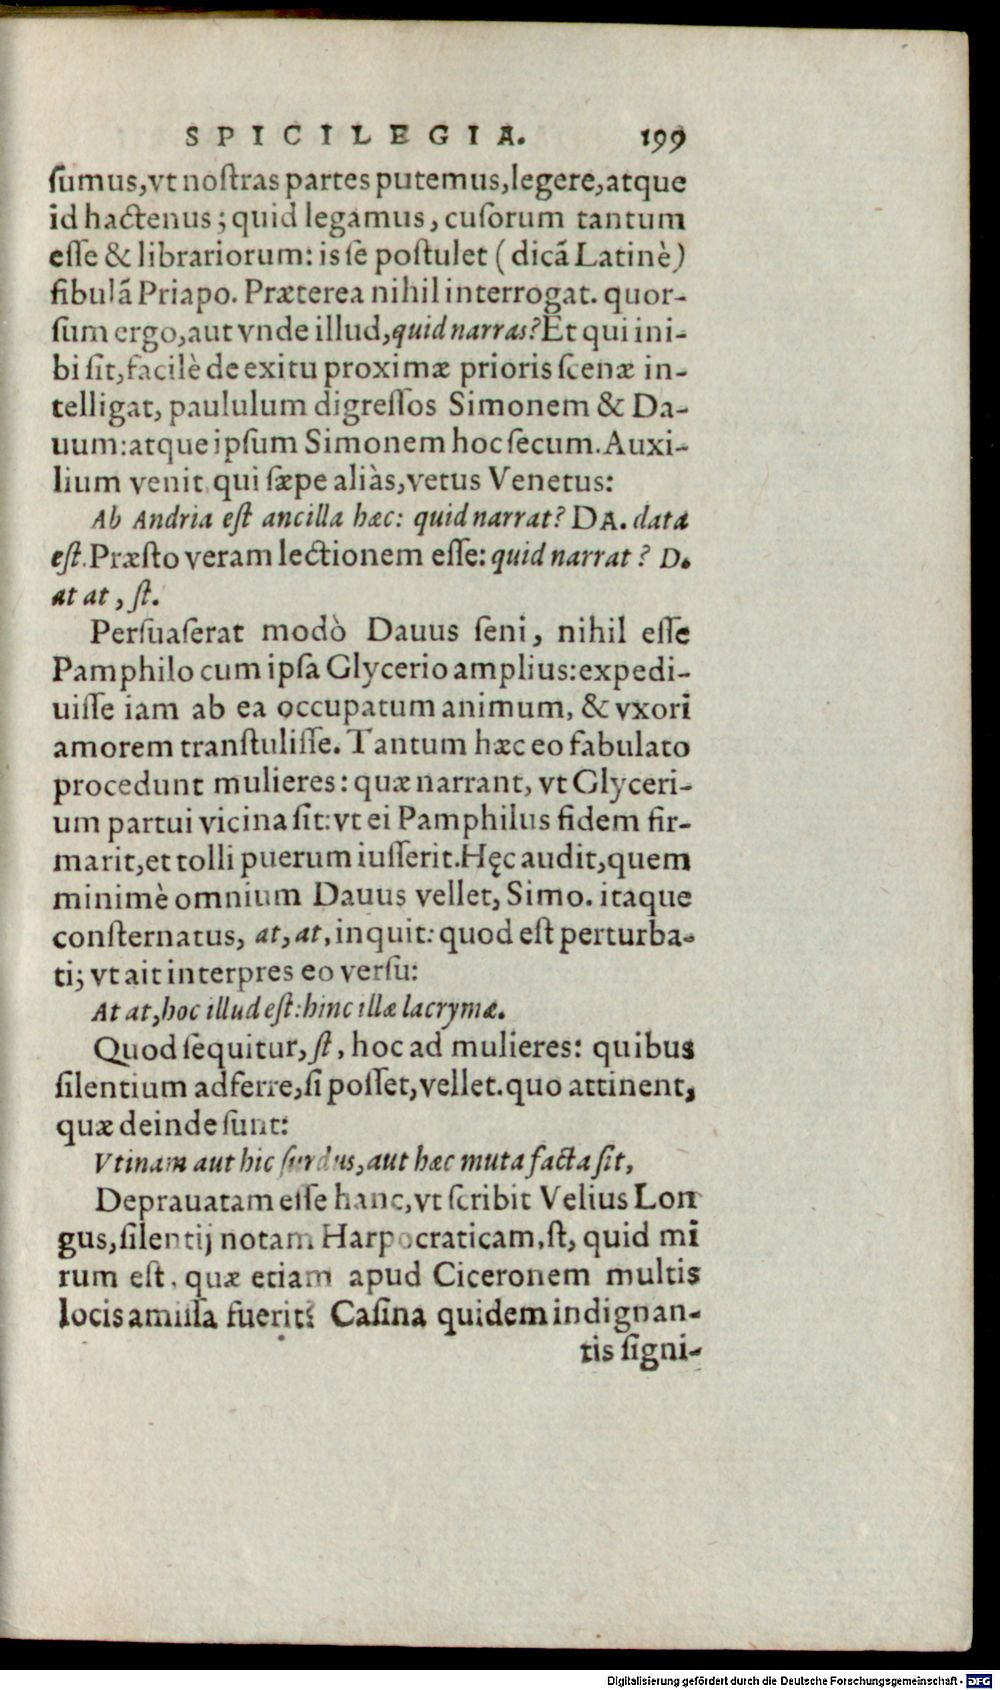 SPICILEGIA. 199
ſumus,vt noſtras partes putemus,legere,atque
id hactenus; quid legamus, cuſorum tantum
eſſe & librariorum: is ſe poſtulet (dicā Latinè)
fibulā Priapo. Præterea nihil interrogat. quor-
ſum ergo,aut vnde illud,quid narras? Et qui ini-
bi ſit,facilè de exitu proximæ prioris ſcenæ in-
telligat, paululum digreſſos Simonem & Da-
uum:atque ipſum Simonem hoc ſecum. Auxi-
lium venit qui ſæpe aliàs,vetus Venetus:
Ab Andria eſt ancilla hæc: quid narrat? DA. data
eſt. Præſto veram lectionem eſſe: quid narrat? D.
at at, ſt.
Perſuaſerat modò Dauus ſeni, nihil eſſe
Pamphilo cum ipſa Glycerio amplius:expedi-
uiſſe iam ab ea occupatum animum, & vxori
amorem tranſtuliſſe. Tantum hæc eo fabulato
procedunt mulieres: quæ narrant, vt Glyceri-
um partui vicina ſit: vt ei Pamphilus fidem fir-
marit,et tolli puerum iuſſerit. Hęc audit,quem
minimè omnium Dauus vellet, Simo. itaque
conſternatus, at, at, inquit: quod eſt perturba-
ti; vt ait interpres eo verſu:
At at, hoc illud eſt: hinc illæ lacrymæ.
Quod ſequitur, ſt, hoc ad mulieres: quibus
ſilentium adferre,ſi poſſet,vellet. quo attinent,
quæ deinde ſunt:
Vtinam aut hic ſurdus, aut hæc muta facta ſit,
Deprauatam eſſe hanc,vt ſcribit Velius Lon
gus,ſilentij notam Harpocraticam,ſt, quid mi
rum eſt, quæ etiam apud Ciceronem multis
locis amiſſa fuerit? Caſina quidem indignan-
tis ſigni-
Digitalisierung gefördert durch die Deutsche Forschungsgemeinschaft - DFG